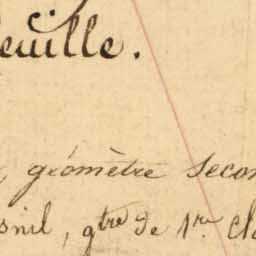 euille.
, géomètre Secon
snil, gtre de 1re Cla